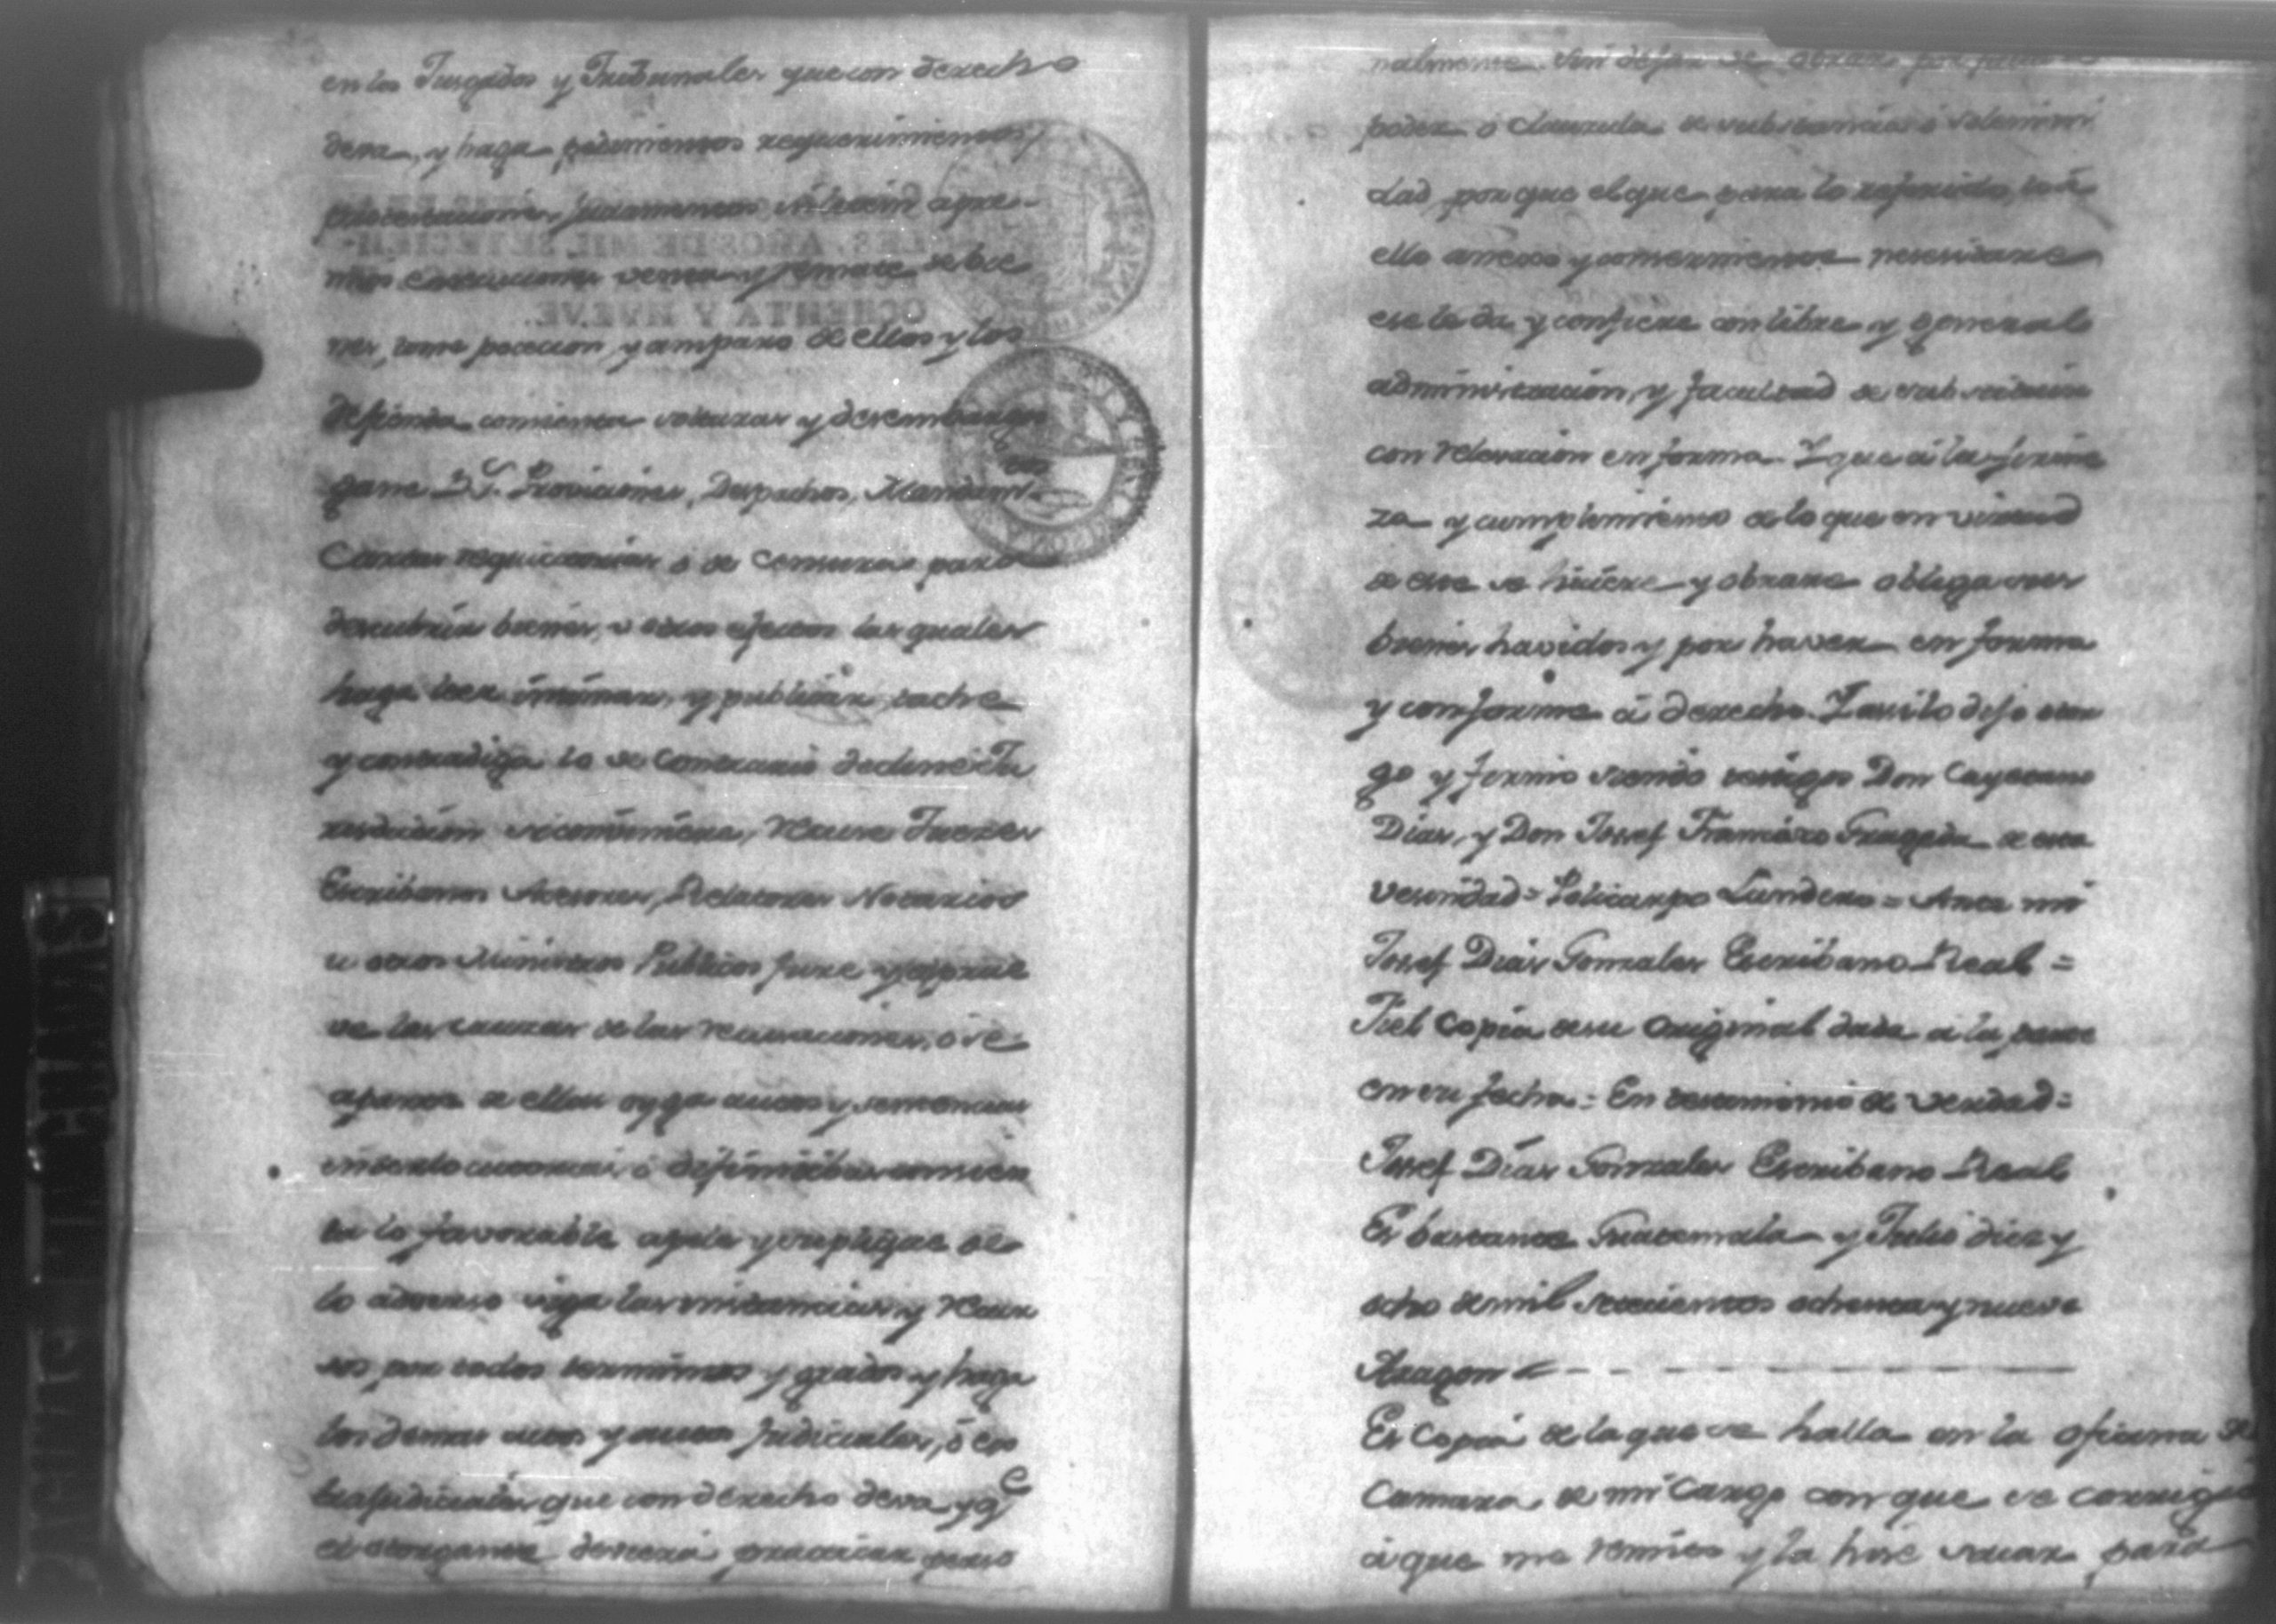 en los Jusgados y Tribunales que con derecho
deva, y haga pedimientos requerimientos,
protestaciones, juramentos, apre-
mios execuciones ventas y remate de bie
nes, tome pocecion, y amparo de ellos y los
defienda, consienta solturas y desembargos
gane Proviciones, Despachos, Mandami.tos
Cartas requicitorias o de Censuras para
descubrir bienes, u otros efectos las quales
haga leer intimar, y publicar, tache
y contradiga lo de Contrario decline Ju
risdicion recuse Jueces
Escribanos Acesores, Relatores Notarios
u otros Ministros Publicos jure y aprue
ve las causas de las recusaciones, o se
aparte de ellas oyga autos y sentencias
interlocutorias o definitibas consien
ta lo favorable apele y suplique de
lo adverso siga las instancias y recur
sos por todos terminos y grados y haga
los demas autos y Judiciales, ó ex
trajudiciales que con derecho deva y q.e
el otorgante deviera practicar perso
nalmente sin dejar de obrar por falta de
poder o clausula de substancia o solemni
dad, por que el que para lo referido, con á
ello annexo y concerniente necesitare
ese le da y confiere con libre y general
administracion, y facultad de substituir
con relevacion en forma Y que á la firme
za y cumplimiento de lo que en virtud
de este se hiciere y obrare obliga sus
bienes havidos y por haver en forma
y conforme á derecho. Y asi lo dijo otor
go y firmo siendo testigos Don Cayetano
Dias, y Don Josef Francisco de esta
vecindad = Policarpo = Ante mi
Josef Dias Gonzales Escribano Real =
Fiel Copia de su Original dada a la parte
en su fecha = En testimonio de verdad =
Josef Dias Gonzales Escribano Real
Es bastante Guatemala y Julio diez y
ocho de mil setecientos ochenta y nueve
Aragon
Es Copia de la que se halla en la oficina de
Camara de mi Cargo con que se corrigió
á que me remito y la hise sacar para